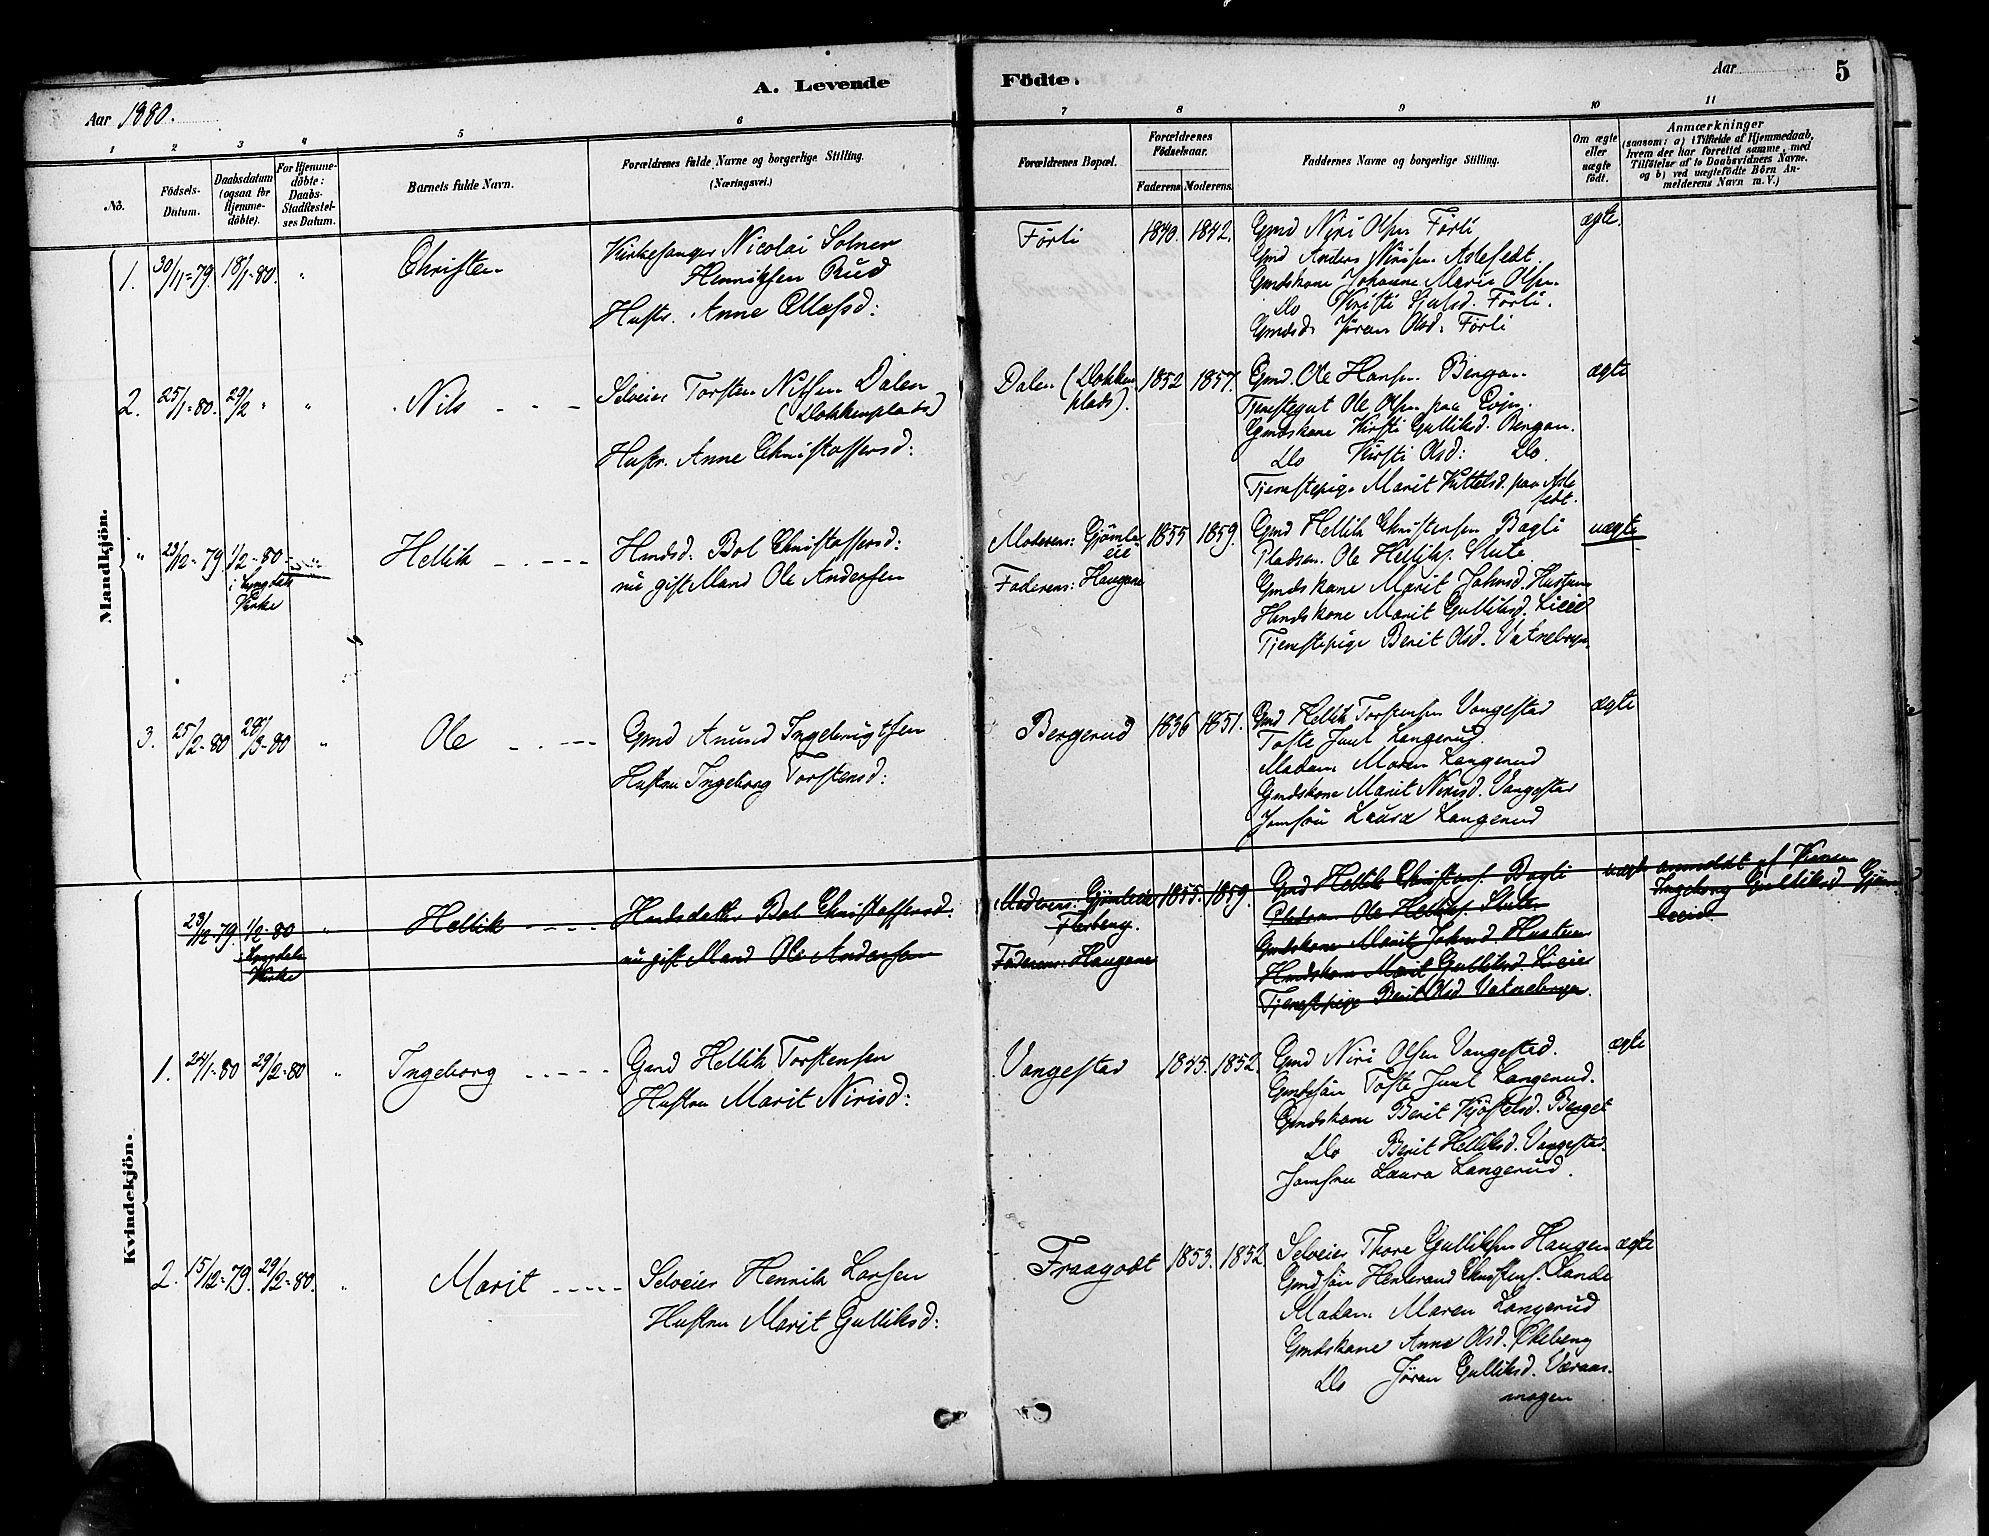 A. Levende Födte.
Aar 1880.
Aar 5
1 2 3 4 5 6 7 8 9 10 11
No.
Födsels-Datum.
Daabsdatum (ogsaa for Hjemme-döbte).
For Hjemme-döbte: Daabs-Stadfæstel-ses Datum.
Barnets fulde Navn.
Forældrenes fulde Navne og borgerlige Stilling.
(Næringsvei.)
Forældrenes Bopæl.
Forældrenes Födselsaar.
Faderens Moderens.
Faddernes Navne og borgerlige Stilling.
Om ægte eller uægte födt.
Anmærkninger
(saasom: a) i Tilfælde af Hjemmedaab, hvem der har forrettet samme, med Tilföielse af to Daabsvidners Navne. og b) ved uægtefödte Börn Anmelderens Navn m. V.)
Mandkjön.
1. 30/11-79. 18/1-80. " Christen
Kirkesanger Nicolai Solner
Henriksen Rud
Hustr. Anne Olafsd:
Förli 1840. 1842.
Gmd Niri Olsen Förli
Gmd Anders Nirisen Aslefedt.
Gmdskone Johanne Marie Olsen
Do Kristi Sjulsd. Förli.
Gmdsd: Jöran Olsd: Förli
ægte.
2. 25/1-80. 29/2 " " Nils
Selveier Torsten Nilsen Dalen
(Dokkenplads)
Hustr. Anne Christoffersd:
Dalen (Dokken
plads). 1852 1857.
Gmd. Ole Hansen Bergan
Tjenestegut Ole Olsen paa Evju.
Gmdskone Kirsti Gulliksd. Bergan.
Do Kirsti Olsd: Do.
Tjenestepige Marit Kittelsd. paa Asle
fedt.
ægte
" 23/12-79 1/2-80
i Lyngdals
Kirke
Hellik
Huusd. Bol Christoffersd:
nu gift Mand Ole Andersen
Moderens: Gjömle
eie
Faderens: Haugane
1855 1859.
Gmd Hellik Christensen Bagli
Pladsm. Ole Helliks. Slute
Gmdskone Marit Johnsd. Hustuen
Huudskone Marit Gulliksd. Lieie
Tjenestepige Berit Olsd. Vatnebryn.
uægte
3. 25/2-80 28/3-80 " Ole
Gmd Anund Ingebrigtsen
Hustru Ingeborg Torstensd:
Bergerud 1836 1851.
Gmd Hellik Torstensen Vangestad
Tofte Juul Langerud.
Madam Maren Langerud
Gmdskone Marit Nirisd. Vangestad
Jomfru Laura Langerud
ægte
Kvindekjön.
23/12-79. 1/2-80 "
Lyngdals
Kirke
Hellik
Huusdatter Bol Christoffersd.
nu gift Mand Ole Andersen
Moderens: Gjömleeie
Flesberg.
Faderens: Haugane
1855. 1859.
Gmd Hellik Christens. Bagli
Pladsm. Ole Helliks. Slute
Gmdskone Marit Johnsd. Hustuen
Huudskone Marit Gulliksd. Lieie
Tjenestpige Berit Olsd Vatnebryn.
uægte anmeldt af Konen
Ingeborg Gulliksd Gjöm
leeie.
1. 24/1-80 29/2-80 " Ingeborg
Gmd Hellik Torstensen
Hustru Marit Nirisd:
Vangestad 1845. 1852.
Gmd Niri Olsen Vangestad.
Gmdssön Tofte Juul Langerud.
Gmdskone Berit Kjöstelsd. Berget
Do Berit Helliksd. Vangestad.
Jomfru Laura Langerud.
ægte
2. 15/12-79. 29/2-80. " Marit
Selveier Henrik Larsen
Hustru Marit Gulliksd:
Fraagodt 1853. 1852.
Selveier Thore Gulliksen Haugen
Gmdsön Herbrand Christens. Lande
Madam Maren Langerud
Gmdskone Anne Olsd. Ekeberg
Do Jöran Gulliksd. Væraas-
mogen
ægte